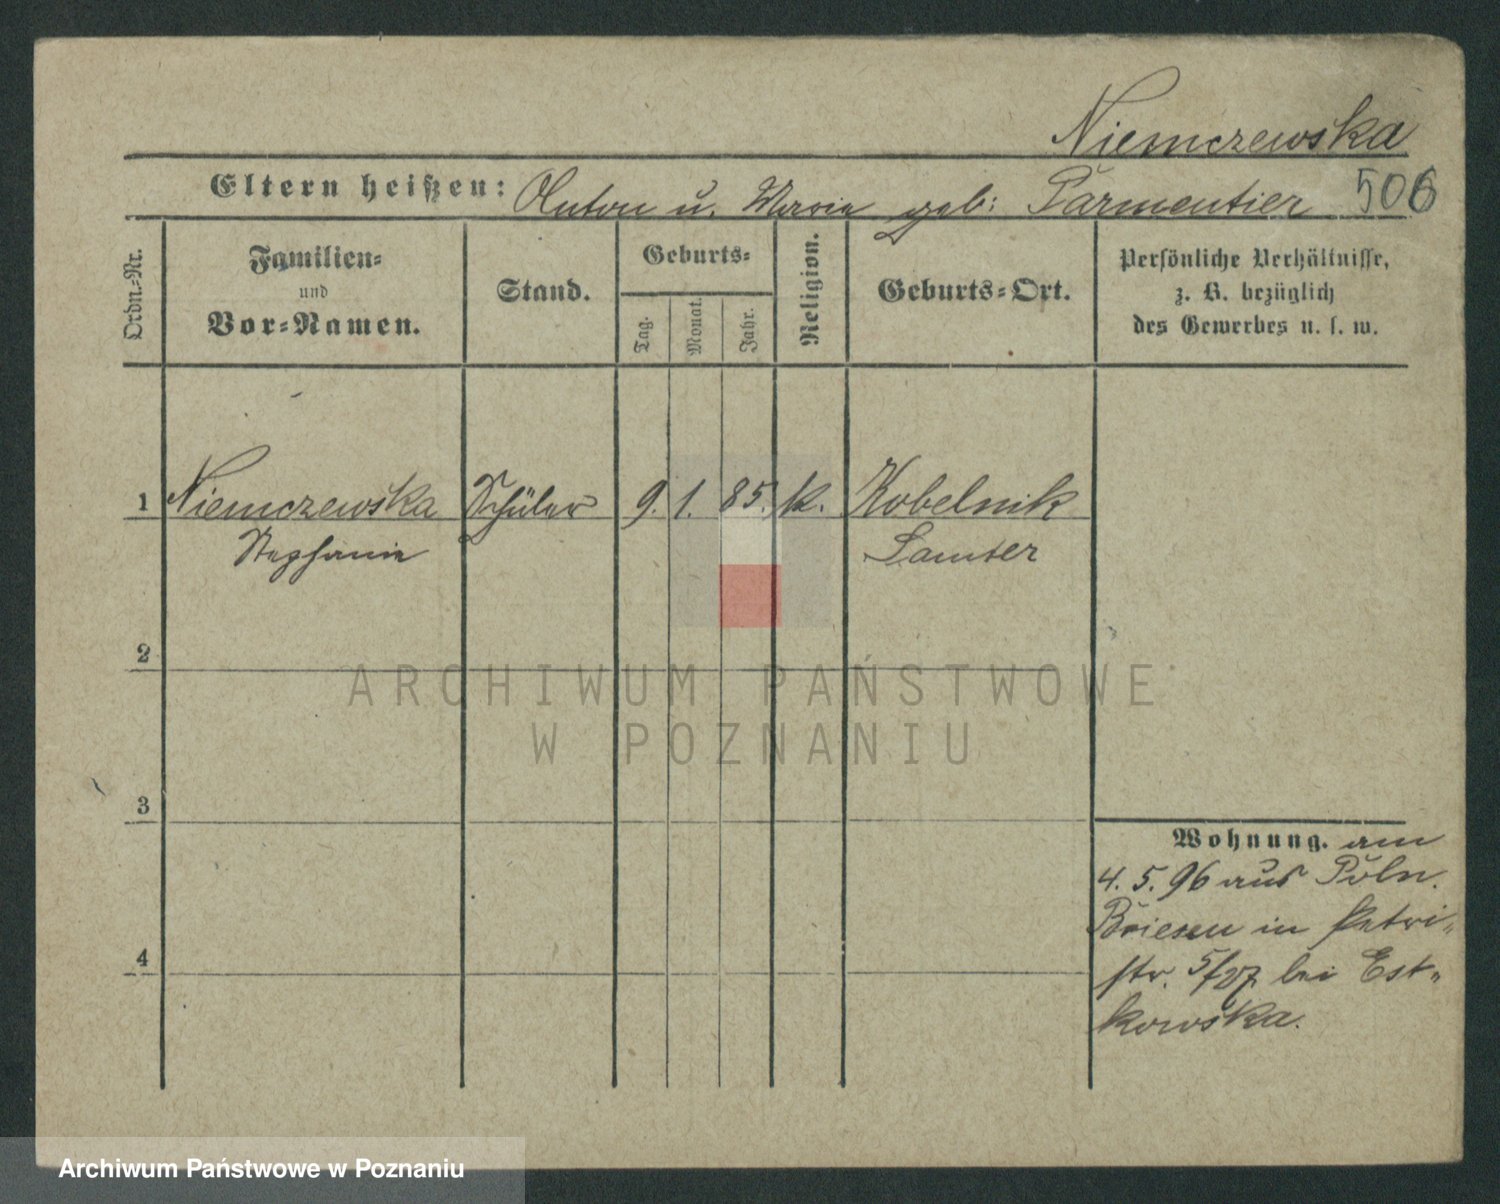 Niemczewska
Eltern heißen: Anton u. Maria geb: Parmentier 506
Ordn.-Nr.
Familien-
und
Vor-Namen.
Stand.
Geburts-
Tag.
Monat.
Jahr.
Religion.
Geburts-Ort.
Persönliche Verhältnisse,
z. B. bezüglich
des Gewerbes u. s. w.
1 Niemczewska Schüler 9. 1. 85. k. Kobelnik
Stephanie Samter
2
3
4
Wohnung. am
4. 5. 96 aus Poln.
Briesen in Petri-
str. 5 bei Est-
kowska.
ARCHIWUM PAŃSTWOWE
W POZNANIU
Archiwum Państwowe w Poznaniu